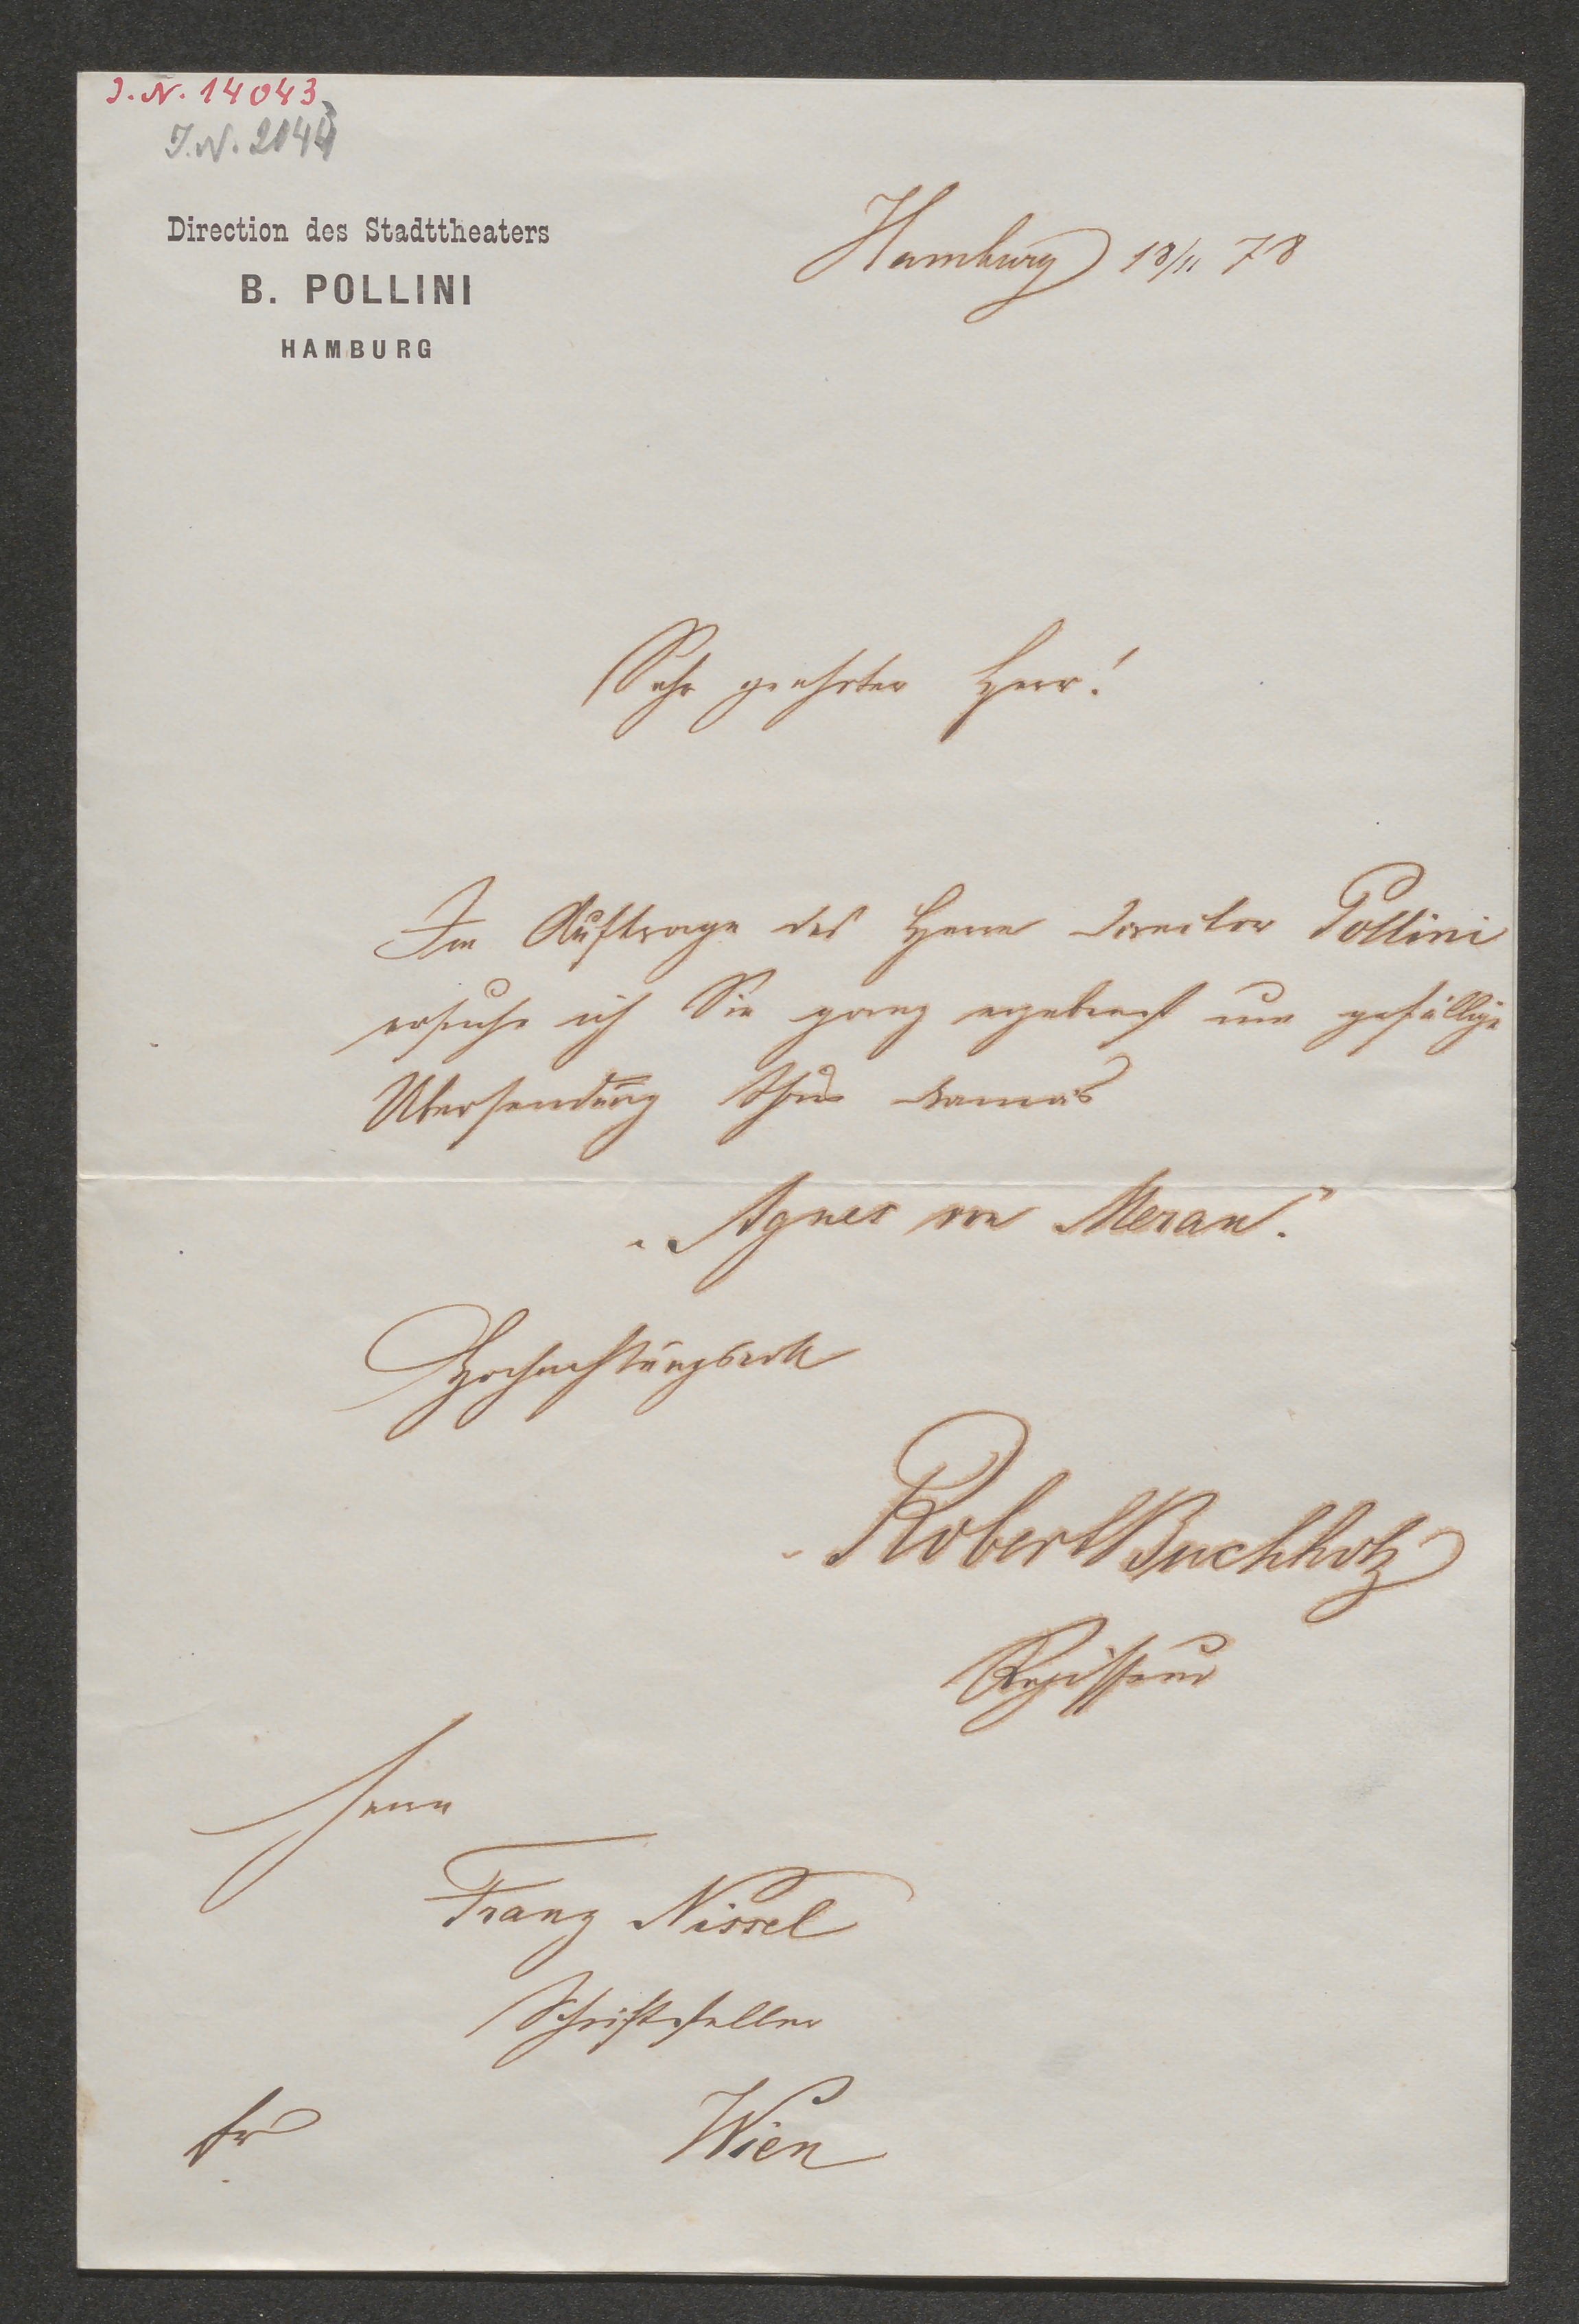 J. N. 14043
J. N. 2044
Direction des Stadttheaters
B. POLLINI
HAMBURG
Hamburg 18/11 78
Sehr geehrter Herr!
Im Auftrage des Herrn Director Pollini
ersuche ich Sie ganz ergebenst um gefällige
Übersendung Ihres Dramas
„Agnes von Meran."
Hochachtungsvoll
Robert Buchholz
Regisseur
Herrn
Franz Nissel
Schriftsteller
Wien